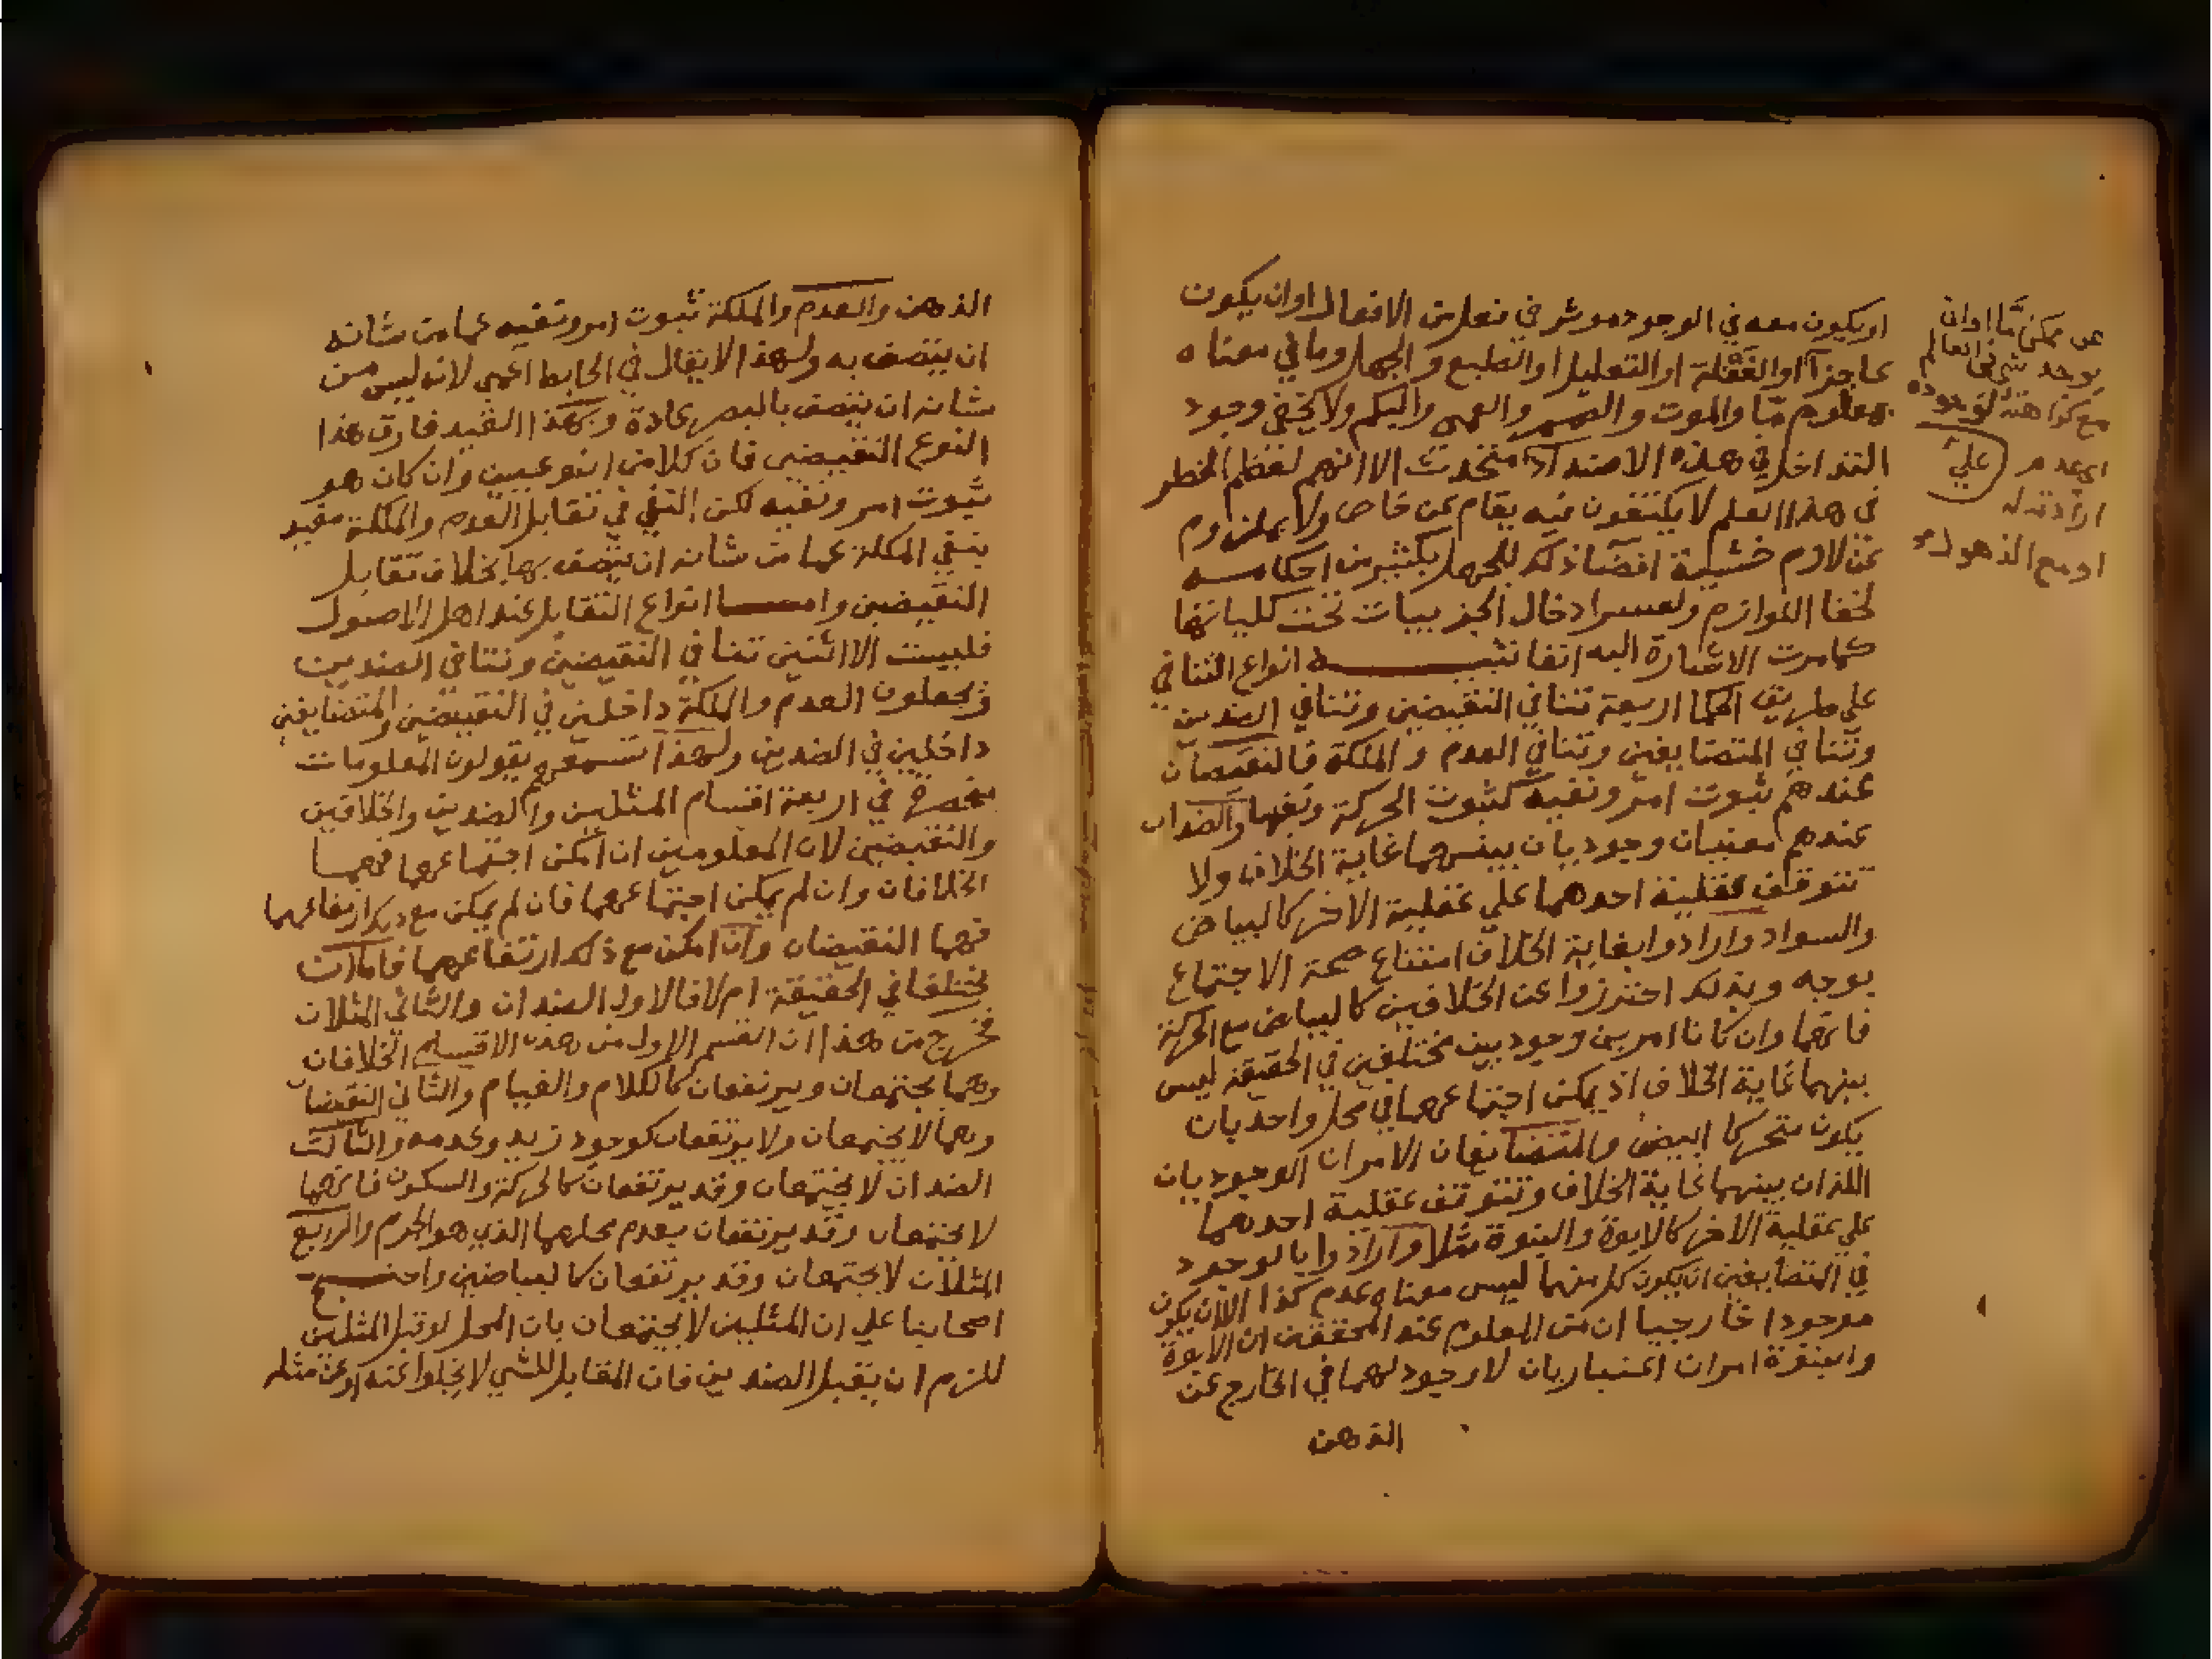 او يكون معه في الوجود موثر في فعل من الافعال او ان يكون
عاجزا او الغفلة او التعليل او الطبع و الجهل وما في معناه
بمعلوم ما والموت والصمم والعمي والبكم ولا يخفي وجود
التداخل في هذه الاضداد الا انهم لعظم الخطر
في هذا العلم لا يكتفون فيه بعام عن خاص ولا بملزوم
عن لازم خشية افضا ذلك للجهل بكثير من احكامه
لخفا اللوازم ولعسر ادخال الجزييات تحت كلياتها
كما مرت الاشارة اليه انفا تنبيه انواع التنافي
علي طريق الحكما اربعة تنافي النقيضين وتنافي الضدين
وتنافي المتضايفين وتنافي العدم والملكة فالنقيضان
عندهم ثبوت امر ونفيه كثبوت الحركة ونفيها والضدان
عندهم معنيان وجوديان بينهما غاية الخلاف ولا
تتوقف عقلية احدهما علي عقلية الاخر كالبياض
والسواد وارادوا بغاية الخلاف امتناع صحة الاجتماع
بوجه وبذلك احترزوا عن الخلافين كالبياض مع الحركة
فانهما وان كانا امرين وجوديين مختلفين في الحقيقة ليس
بينهما غاية الخلاف اذ يمكن اجتماعهما في محل واحد بان
يكون متحركا ابيض والمتضايفان الامران الوجوديان
اللذان بينهما غاية الخلاف وتتوقف عقلية احدهما
علي عقلية الاخر كالابوة والبنوة مثلا وارادوا بالوجود
في المتضايفين ان يكون كل منهما ليس معناه عدم كذا الا ان يكون
موجودا خارجيا ان من المعلوم عند المحققين ان الابوة
والبنوة امران اعتباريان لا وجود لهما في الخارج عن
الذهن
عن ممكن ما او ان
يوجد شي في العالم
مع كراهته لوجوده
اي عدم
ارادته له
او مع الذهول
الذهن والعدم والملكة ثبوت امر ونفيه عما من شانه
ان يتصف به ولهذا لا يقال في الحايط اعمي لانه ليس من
شانه ان يتصف بالبصر عادة وبهذا القيد فارق هذا
النوع النقيضين فان كلا من النوعين وان كان هو
ثبوت امر ونفيه لكن النفي في تقابل العدم والملكة مقيد
بنفي الملكة عما من شانه ان يتصف بها بخلاف تقابل
النقيضين واما انواع التقابل عند اهل الاصول
فليست الا اثنين تنافي النقيضين وتنافي الضدين
ويجعلون العدم والملكة داخلين في النقيضين والمتضايفين
داخلين في الضدين ولهذا تسمعهم يقولون المعلومات
منحصرة في اربعة اقسام المثلين والضدين والخلافين
والنقيضين لان المعلومين ان امكن اجتماعهما فهما
الخلافان وان لم يمكن اجتماعهما فان لم يمكن مع ذلك ارتفاعهما
فهما النقيضان وان امكن مع ذلك ارتفاعهما فاما ان
يختلفا في الحقيقة ام لا فالاول الضدان والثاني المثلان
فخرج من هذا ان القسم الاول من هذه الاقسام الخلافان
وهما يجتمعان ويرتفعان كالكلام والقيام والثاني النقيضان
وهما لا يجتمعان ولا يرتفعان كوجود زيد وعدمه والثالث
الضدان لا يجتمعان وقد يرتفعان كالحركة والسكون فانهما
لا يجتمعان وقد يرتفعان بعدم محلهما الذي هو الجرم والرابع
المثلان لا يجتمعان وقد يرتفعان كالبياضين واحتج
اصحابنا علي ان المثلين لا يجتمعان بان المحل لو قبل المثلين
للزم ان يقبل الضدين فان القابل للشي لا يخلو عنه او عن مثله